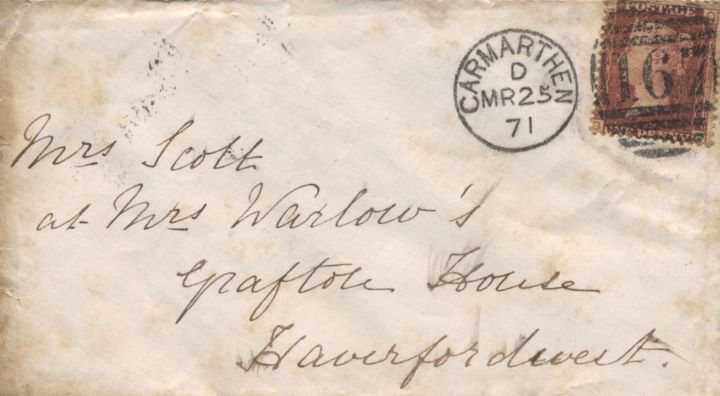 CARMARTHEN
D
MR 25
71
POSTAGE
167
Mrs Scott
at Mrs Warlow's
Grafton House
Haverfordwest.